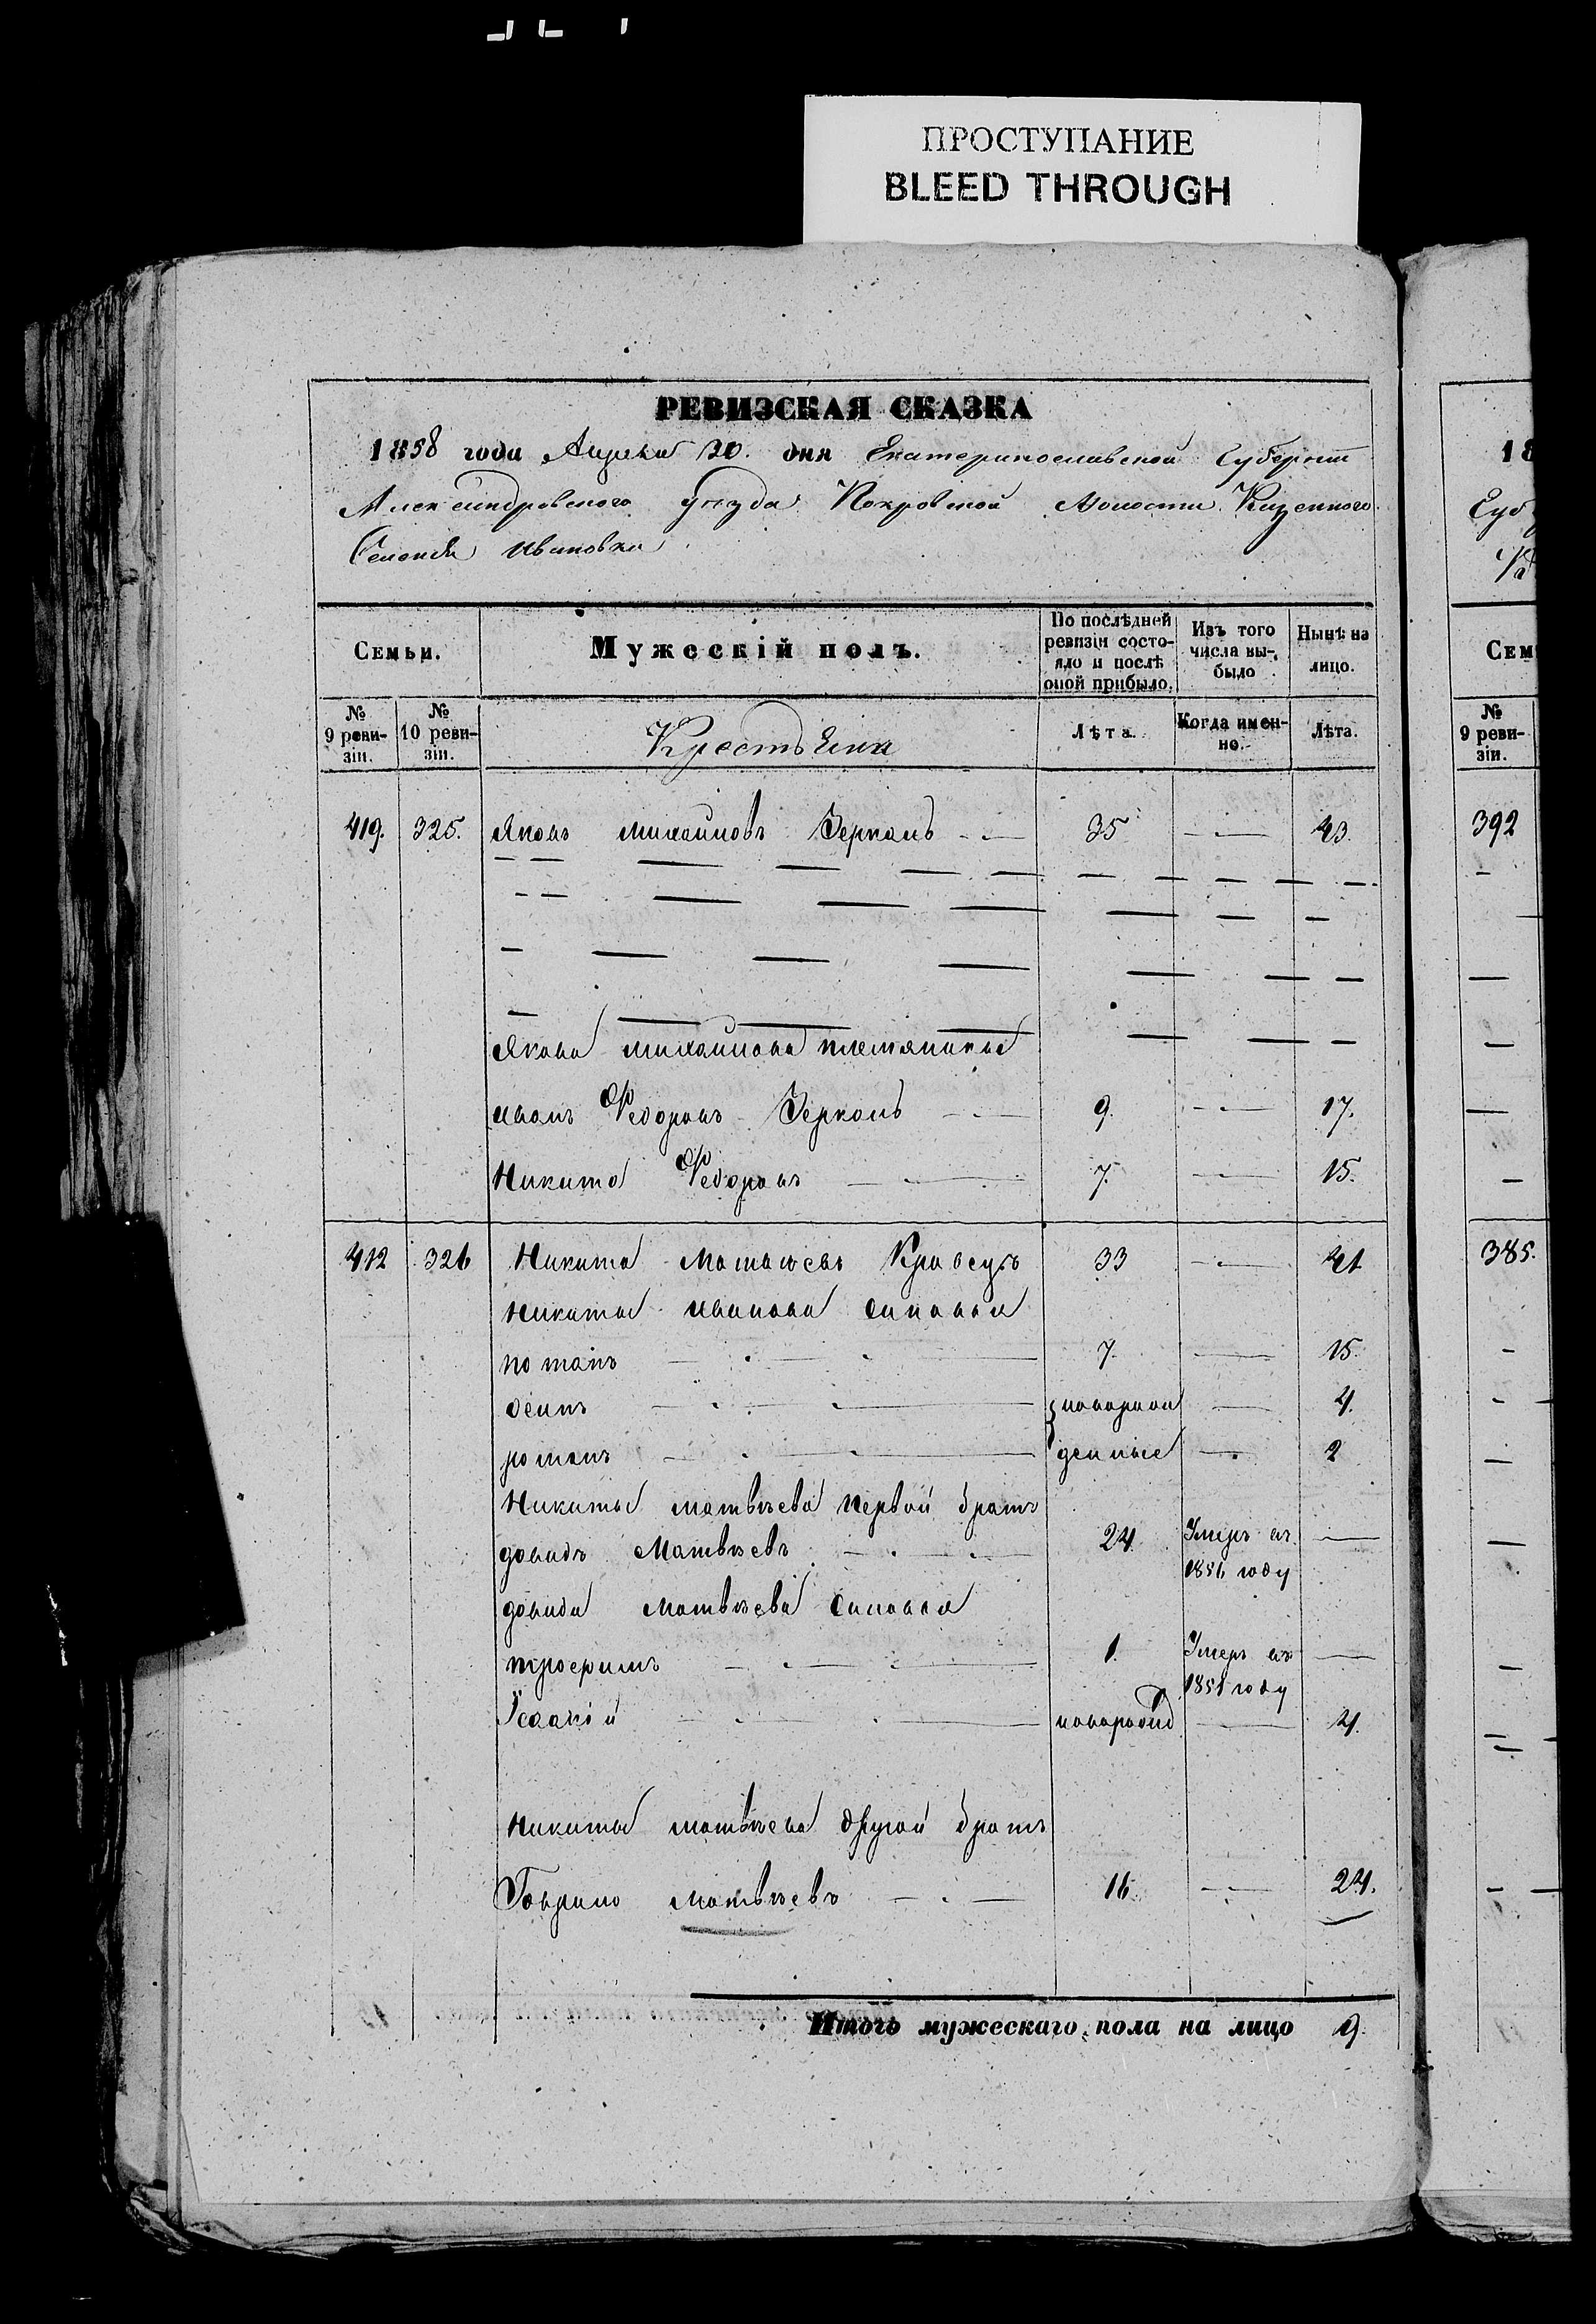 ПРОСТУПАНИЕ
BLEED THROUGH
РЕВИЗСКАЯ СКАЗКА
1858 года Апреля 30. дня Екатеринославской Губернiи
Александровского уезда Покровской Волости Казенного
Селения Ивановки
Семьи.
Мужескiй полъ.
По послѣдней ревизiи состояло и послѣ оной прибыло.
Изъ того числа выбыло
Нынѣ на лицо.
№ 9 ревизiи.
№ 10 ревизiи.
Крестьяна
Лѣта.
Когда именно.
Лѣта.
419. 325. Яковъ михаиловъ Зеркалъ 35 43.
Якова михаилова племяники
иванъ Федоровъ Зеркалъ 9. 17.
Никита Федоровъ 7. 15.
412 326 Никита Матвѣевъ Кравецъ 33 41
Никиты иванова синовья
потапъ 7. 15.
осипъ новорож 4.
романъ денные 2
Никиты матвѣева первой братъ
давидъ Матвѣевъ 24. Умеръ въ
1856 году
давида Матвѣева синовья
трофимъ 1. Умеръ въ
1851 году
Iсаакiй новорожд 4.
Никиты матвѣева другой братъ
Гаврило матвѣевъ 16. 24.
Итогъ мужескаго пола на лицо 9.
18
Губ
Сем
№ 9 ревизiи.
392
385.